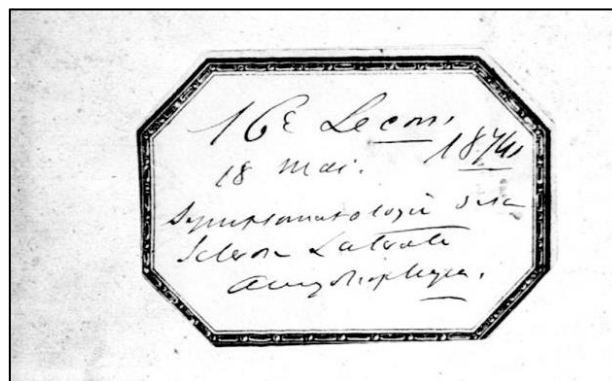 16e Leçon
18 mai. 1874
Symptomatologie de la
Sclérose Latérale
Amyotrophique.